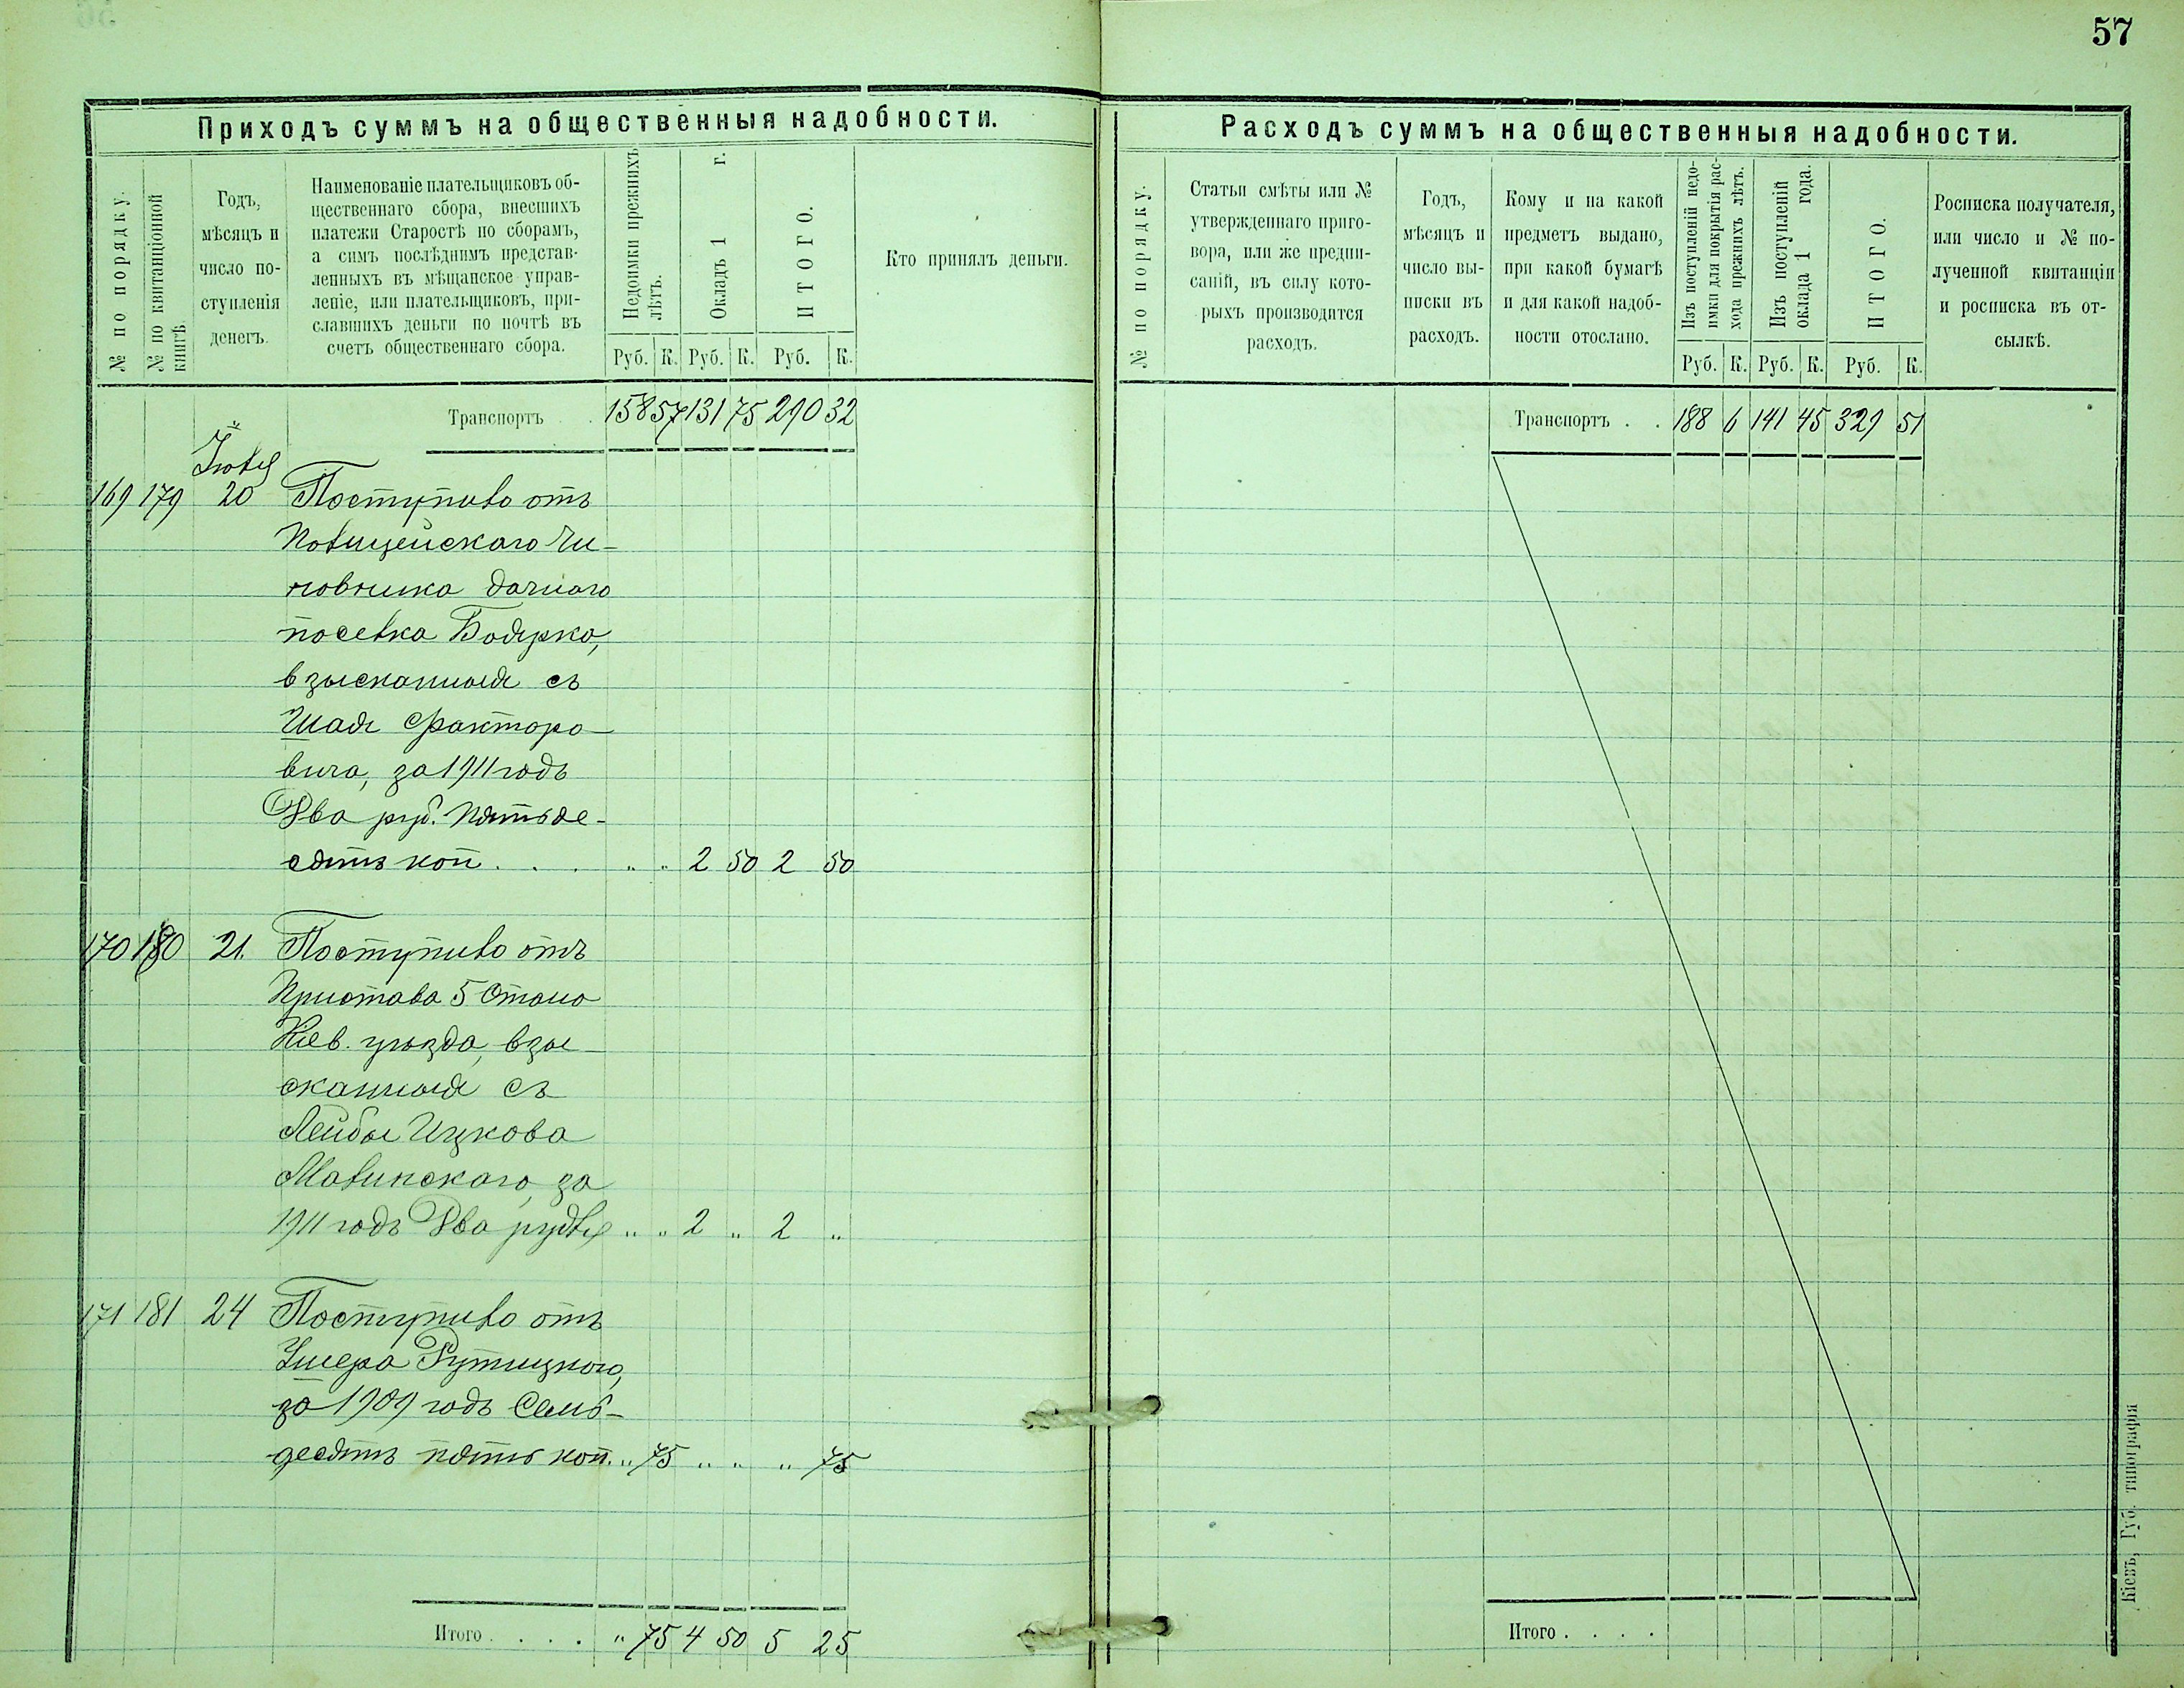 57
Приходъ суммъ на общественныя надобности.
№ по порядку.
№ по квитанціонной книгѣ.
Годъ,
мѣсяцъ и
число по-
ступленія
денегъ.
Наименованіе плательщиковъ об-
щественнаго сбора, внесшихъ
платежи Старостѣ по сборамъ,
а симъ послѣднимъ представ-
ленныхъ въ мѣщанское управ-
леніе, или плательщиковъ, при-
славшихъ деньги по почтѣ въ
счетъ общественнаго сбора.
Недоимки прежнихъ
лѣтъ.
Окладъ 1 г.
ИТОГО.
Руб. К. Руб. К. Руб. К.
Кто принялъ деньги.
Транспортъ . . 158 57 131 75 290 32
Іюля
169 179 20 Поступило отъ
Полицейскаго Чи-
новника дачнаго
поселка Боярка,
взысканныя съ
Шаи Факторо-
вича, за 1911 годъ
Два руб. Пятьде-
сятъ коп. . . " " 2 50 2 50
170 180 21. Поступило отъ
Пристава 5 Стана
Кіев. уѣзда, взы-
сканныя съ
Лейбы Ицкова
Малинскаго, за
1911 годъ Два рубля " " 2 " 2 "
171 181 24 Поступило отъ
Ушера Рутицкаго,
за 1909 годъ Семь-
десятъ пять коп. " 75 " " " 75
Итого . . . . " 75 4 50 5 25
Расходъ суммъ на общественныя надобности.
№ по порядку.
Статьи смѣты или №
утвержденнаго приго-
вора, или же предпи-
саній, въ силу кото-
рыхъ производится
расходъ.
Годъ,
мѣсяцъ и
число вы-
писки въ
расходъ.
Кому и на какой
предметъ выдано,
при какой бумагѣ
и для какой надоб-
ности отослано.
Изъ поступленій недо-
имки для покрытія рас-
хода прежнихъ лѣтъ.
Изъ поступленій
оклада 1 года.
ИТОГО.
Руб. К. Руб. К. Руб. К.
Росписка получателя,
или число и № по-
лученной квитанціи
и росписка въ от-
сылкѣ.
Транспортъ . . 188 6 141 45 329 51
Итого . . . .
Кіевъ, Губ. типографія